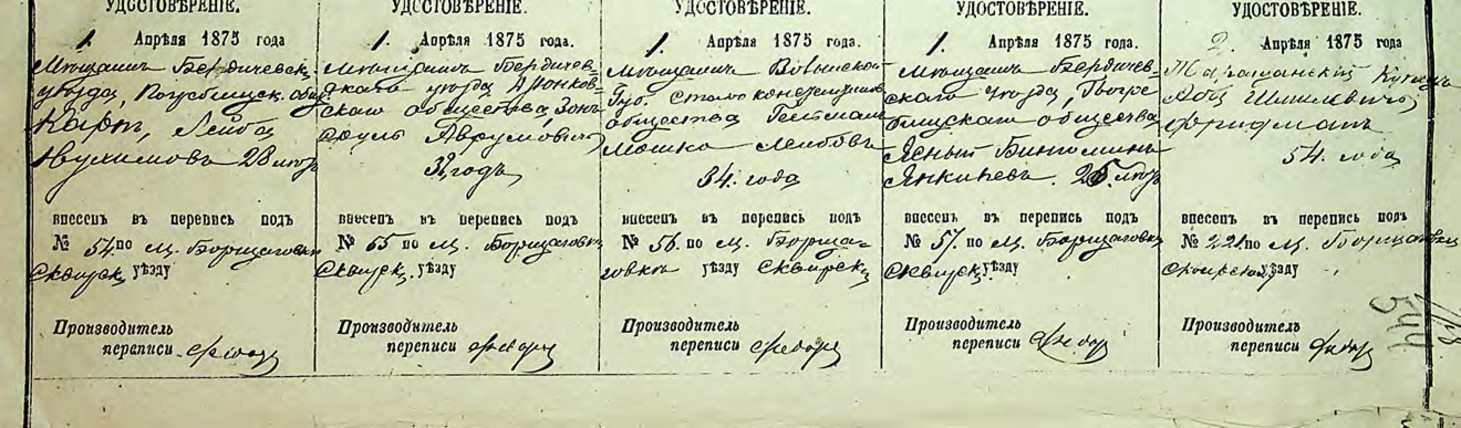 УДОСТОВѢРЕНІЕ.
1. Апрѣля 1875 года
Мѣщанинъ Бердичевск.
уѣзда, Погребищск. общ.
Карпъ, Лейба
Нухимовъ 28 лѣтъ
внесенъ въ перепись подъ
№ 54. по м. Борщаговкѣ
Сквирск. уѣзду
Производитель
переписи
УДОСТОВѢРЕНІЕ.
1. Апрѣля 1875 года.
Мѣщанинъ Бердичев-
скаго уѣзда
скаго общества,
Сруль Аврумовичъ
32 годъ
внесенъ въ перепись подъ
№ 55 по м. Борщаговкѣ
Сквирск. уѣзду
Производитель
переписи
УДОСТОВѢРЕНІЕ.
1. Апрѣля 1875 года.
Мѣщанинъ Волынской
Губ. Староконстантинов.
общества
Мошко Лейбовъ
34. года
внесенъ въ перепись подъ
№ 56. по м. Борща-
говкѣ уѣзду Сквирск.
Производитель
переписи
УДОСТОВѢРЕНІЕ.
1. Апрѣля 1875 года.
Мѣщанинъ Бердичев-
скаго уѣзда, Погре-
бищскаго общества
Ясный Биніоминъ
Янкилевъ. 25 лѣтъ
внесенъ въ перепись подъ
№ 57. по м. Борщаговкѣ
Сквирск. уѣзду
Производитель
переписи
УДОСТОВѢРЕНІЕ.
2. Апрѣля 1875 года
Таращанскій Купецъ
Аба Шмилевичъ
Фридманъ
54. года
внесенъ въ перепись подъ
№ 221. по м. Борщаговкѣ
уѣзду
Производитель
переписи